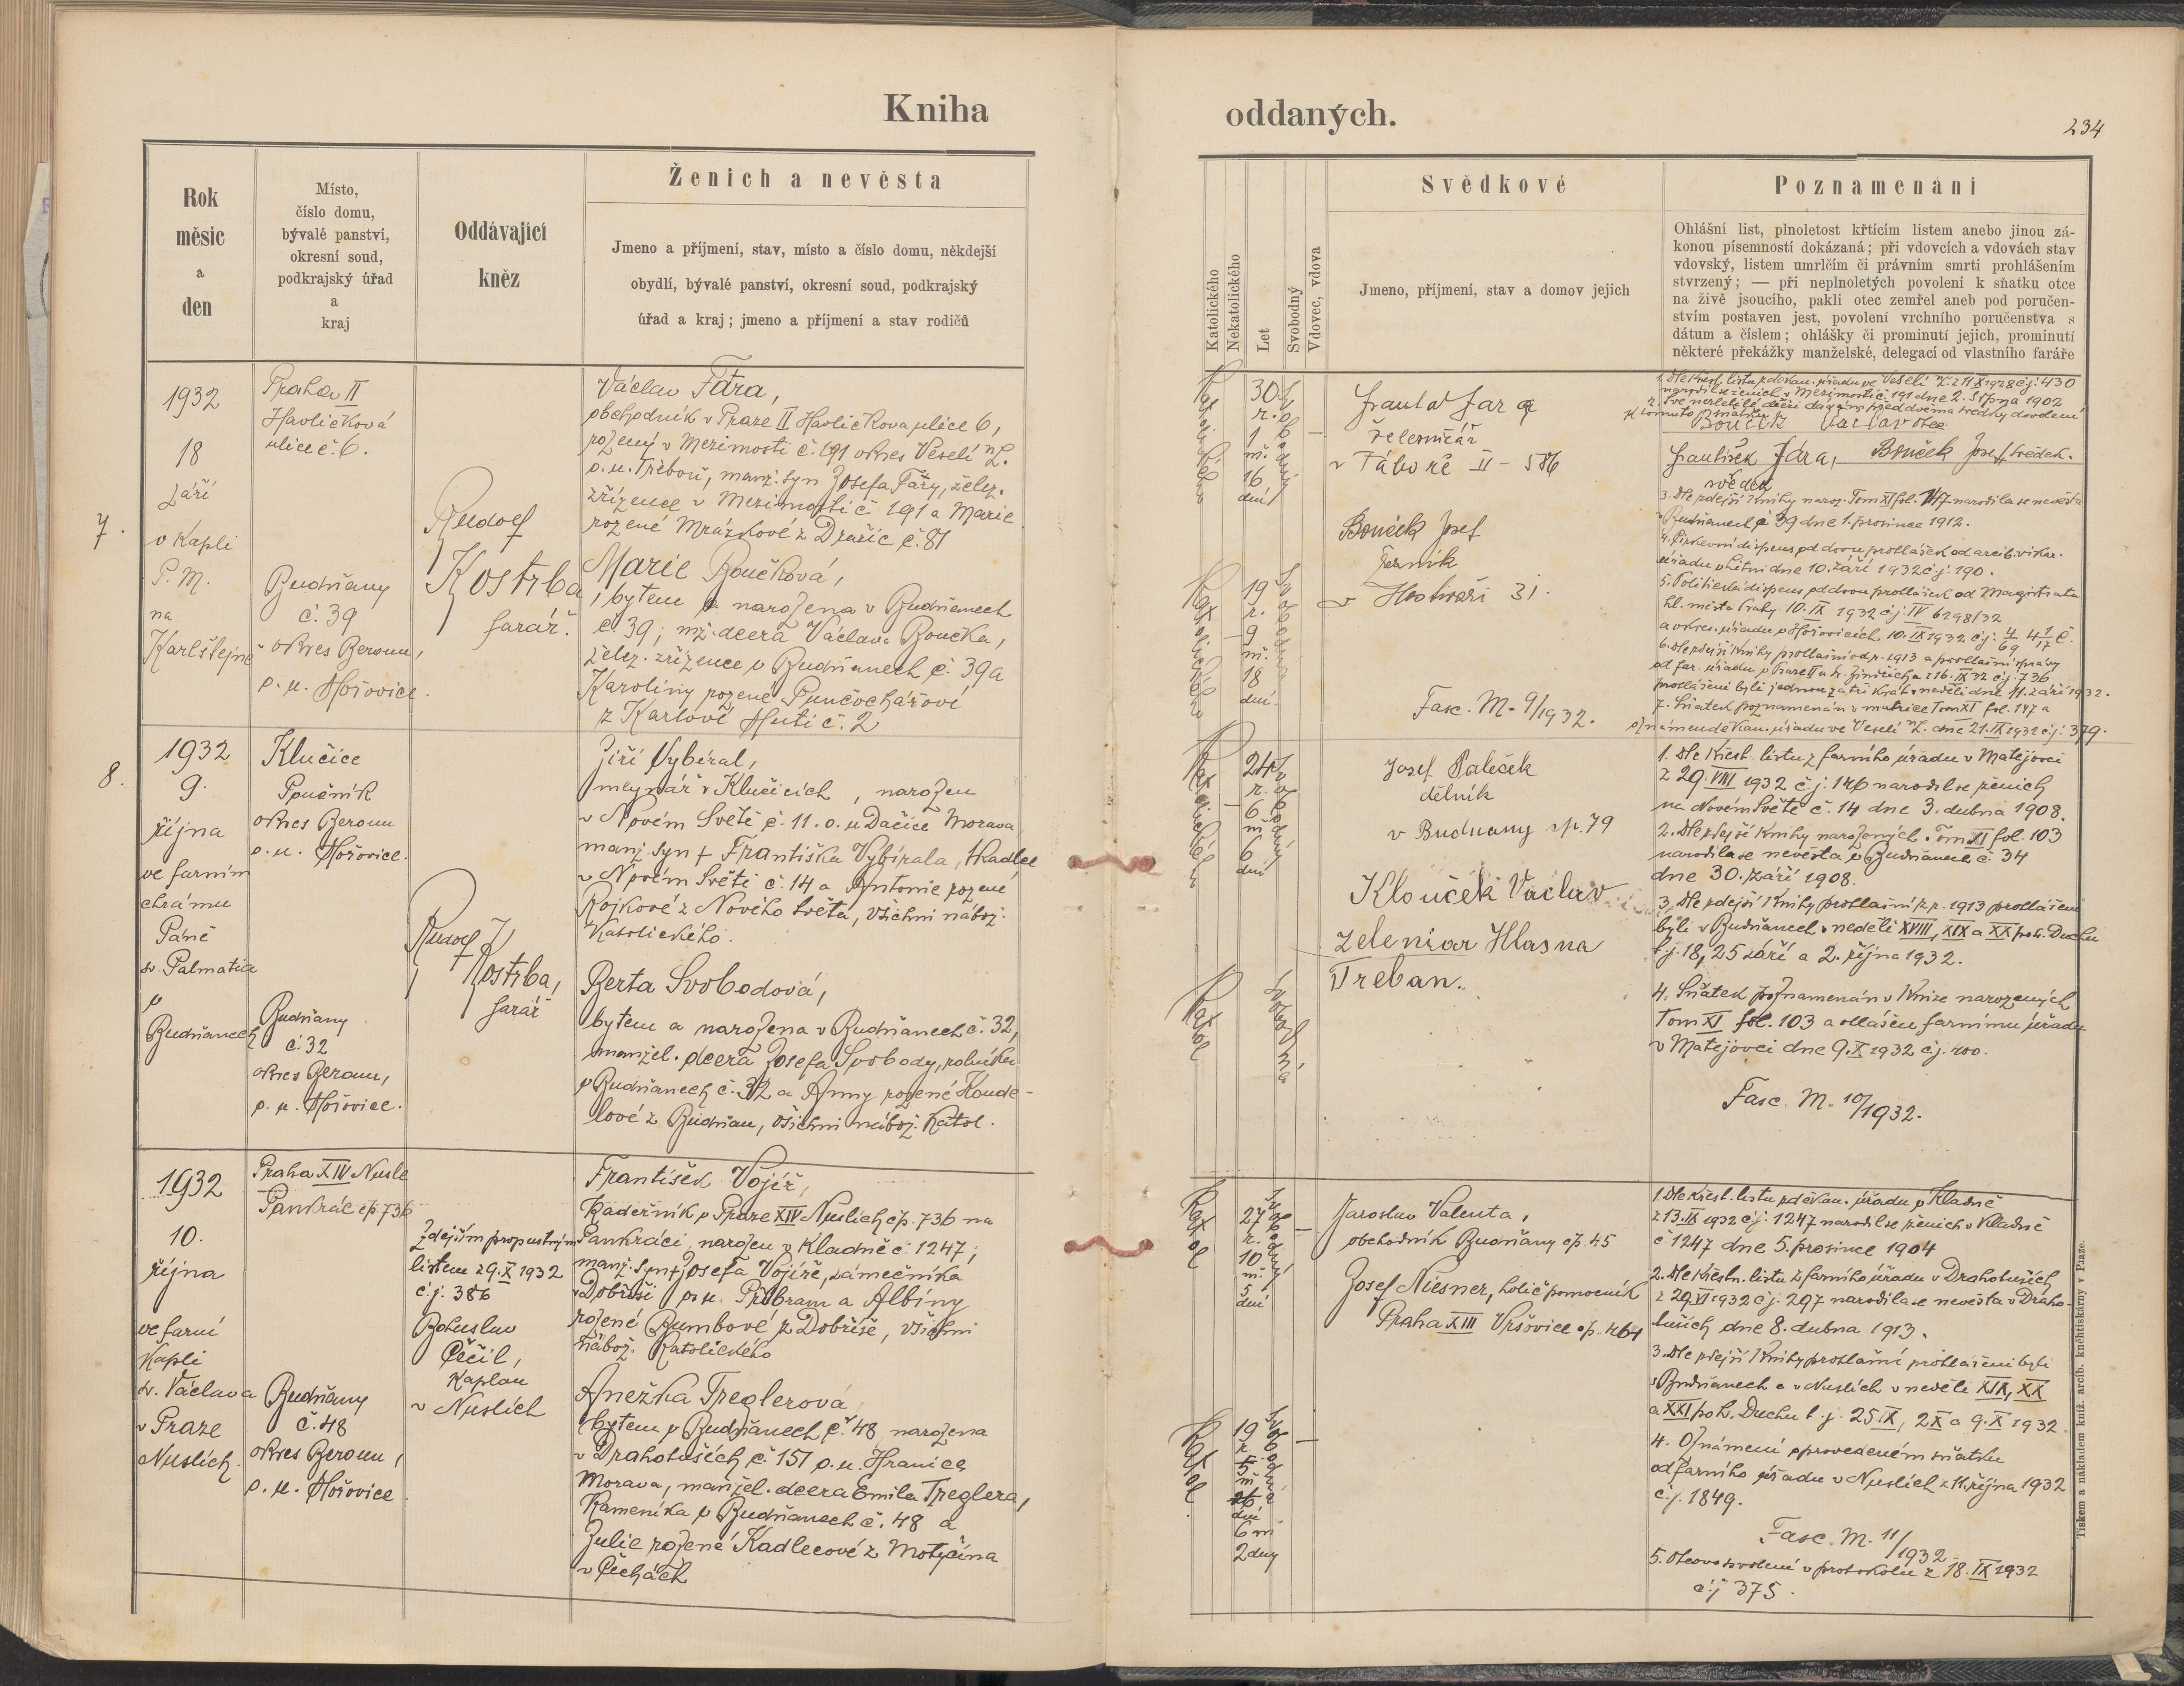 Kniha
oddaných.
234
Rok
měsíc
a
den
Místo,
číslo domu,
bývalé panství,
okresní soud,
podkrajský úřad
a
kraj
Oddávající
kněz
Ženich a nevěsta
Jmeno a příjmení, stav, místo a číslo domu, někdejší
obydlí, bývalé panství, okresní soud, podkrajský
úřad a kraj; jmeno a příjmení a stav rodičů
Katolického
Nekatolického
Let
Svobodný
Vdovec, vdova
Svědkové
Jmeno, příjmení, stav a domov jejich
Poznamenání
Ohlášní list, plnoletost křtícím listem anebo jinou zá-
konou písemností dokázaná; při vdovcích a vdovách stav
vdovský, listem umrlčím či právním smrti prohlášením
stvrzený; — při neplnoletých povolení k sňatku otce
na živě jsoucího, pakli otec zemřel aneb pod poručen-
stvím postaven jest, povolení vrchního poručenstva s
dátum a číslem; ohlášky či prominutí jejich, prominutí
některé překážky manželské, delegací od vlastního faráře
7.
1932
18
září
v kapli
P. M.
na
Karlštejně
Praha II
Havlíčková
ulice č. 6.
Budňany
č. 39
okres Beroun,
p. u. Hořovice.
Rudolf
Kostrba
farář.
Václav Fára,
obchodník v Praze II Havlíčkova ulice 6,
rozený v Mezimostí č. 191 okres Veselí n/L.
o. u. Třeboň, manž. syn Josefa Fáry, želez.
zřízence v Mezimostí č 191 a Marie
rozené Mrázkové z Dražic č. 81
Marie Boučková,
bytem a narozena v Budňanech
č. 39; mž. dcera Václava Boučka,
želez. zřízence v Budňanech č. 39 a
Karolíny rozené Punčochářové
z Karlové Huti č. 2
Katolického
30
r.
1
m.
16
dní
Svobodný
Katolického
19
r.
9
m.
18
dní
Svobodná
Frant. Fára
železničář
v Táboře II - 586
Bouček Josef
v 31.
Fasc. M. 9/1932.
1. Dle křest. listu z děkan. úřadu ve Veselí n/L. z 11 X 1928 č.j. 430
narodil se ženich v Mezimostí č. 191 dne 2. srpna 1902
2. Své nezletilé dceři dávám před dvěma svědky dovolení
k tomuto sňatku
Bouček Václav otec
František Fára, Bouček Josef, svědek.
svědek
3. Dle zdejší knihy naroz. Tom XI fol. 147 narodila se nevěsta
v Budňanech č 39 dne 1. prosince 1912.
4. Církevní dispens od dvou prohlášek od arcib. vikar.
úřadu v Litni dne 10. září 1932 č.j. 190.
5. Politická dispens od dvou prohlášek od Magistrátu
hl. města Prahy 10. IX 1932 č.j. IV 6298/32
a okres. úřadu v Hořovicích 10. IX 1932 č.j.
6. Dle zdejší knihy prohlášní od r. 1913 a prohlášní zprávy
od far. úřadu v Praze II u sv. Jindřicha z 16. IX 32 č.j. 736
prohlášeni byli jednou za tři krát v neděli dne 11. září 1932.
7. Sňatek poznamenán v matrice Tom XI fol. 147 a
oznámen děkan. úřadu ve Veselí n/L. dne 21. IX 1932 č.j. 379.
8.
1932
9.
října
ve farním
chrámu
Páně
sv. Palmatia
v
Budňanech
Klučice
Poučník
okres Beroun
p. u. Hořovice.
Budňany
č. 32
okres Beroun,
p. u. Hořovice.
Rudolf
Kostrba,
farář
Jiří Vybíral,
mlynář v Klučicích, narozen
v Novém Světě č. 11. o. u Dačice Morava
manž. syn + Františka Vybírala, tkadlce
v Novém Světě č. 14 a Antonie rozené
Rojkové z Nového Světa, všichni nábož.
Katolického.
Berta Svobodová,
bytem a narozena v Budňanech č. 32,
manžel. dcera Josefa Svobody, rolníka
v Budňanech č. 32 a Anny rozené Koude-
lové z Budňan, všichni nábož. Katol.
Katolického
24
r.
6
m
6
dní
Svobodný
Katol
Svobodná
Josef Paleček
dělník
v Budnany čp. 79
Klouček Václav
zeleniar Hlasna
Treban.
1. Dle křest. listu z farního úřadu v Matějovci
z 29. VIII 1932 č.j. 146 narodil se ženich
na Novém Světě č. 14 dne 3. dubna 1908.
2. Dle zdejší knihy narozených Tom XI fol. 103
narodila se nevěsta v Budňanech č. 34
dne 30. září 1908.
3. Dle zdejší knihy prohlášní z r. 1913 prohlášeni
byli v Budňanech v neděli XVIII, XIX a XX po sv. Duchu
t.j. 18, 25 září a 2. října 1932.
4. Sňatek poznamenán v knize narozených
Tom XI fol. 103 a ohlášen farnímu úřadu
v Matějovci dne 9. X 1932 č.j. 400.
Fasc. M. 10/1932.
1932
10.
října
ve farní
kapli
sv. Václava
v Praze
Nuslích.
Praha XIV Nusle
Pankrác čp 736
Budňany
č. 48
okres Beroun,
p. u. Hořovice
Zdejším propustným
listem z 9. X 1932
č.j. 386
Bohuslav
Čečil,
kaplan
v Nuslích
František Vojíř,
Kadeřník v Praze XIV Nuslích čp. 736 na
Pankráci, narozen v Kladně č. 1247;
manž. syn + Josefa Vojíře, zámečníka
v Dobříši p. u. Příbram a Albíny
rozené Bumbové z Dobříše, všichni
nábož. Katolického
Anežka Treglerová
bytem v Budňanech č. 48, narozena
v Drahotuších č. 151 o. u. Hranice
Morava, manžel. dcera Emila Treglera,
Kameníka v Budňanech č. 48 a
Julie rozené Kadlecové z Motyčína
v Čechách
Katol
27
r.
10
m.
5
dní
Svobodný
Katol
19
r.
5
m
26
dní
6 m
2 dny
Svobodná
Jaroslav Valenta,
obchodník Budňany čp. 45
Josef Niesner, holič pomocník
Praha XIII Vršovice čp. 464
1. Dle křest. listu z děkan. úřadu v Kladně
z 13. IX 1932 č.j. 1247 narodil se ženich v Kladně
č 1247 dne 5. prosince 1904
2. Dle křestn. listu z farního úřadu v Drahotuších
z 29. VI 1932 č.j. 297 narodila se nevěsta v Draho-
tuších dne 8. dubna 1913.
3. Dle zdejší knihy prohlášní prohlášeni byli
v Budňanech a v Nuslích v neděli XIX, XX
a XXI po sv. Duchu t.j. 25 IX, 2 X a 9. X 1932.
4. Oznámení o provedeném sňatku
od farního úřadu v Nuslích z 11. října 1932
č.j. 1849.
Fasc. M. 11/1932
5. Otcovo svolení v protokolu z 18. IX 1932
č.j 375.
Tiskem a nákladem kníž. arcib. knihtiskárny v Praze.